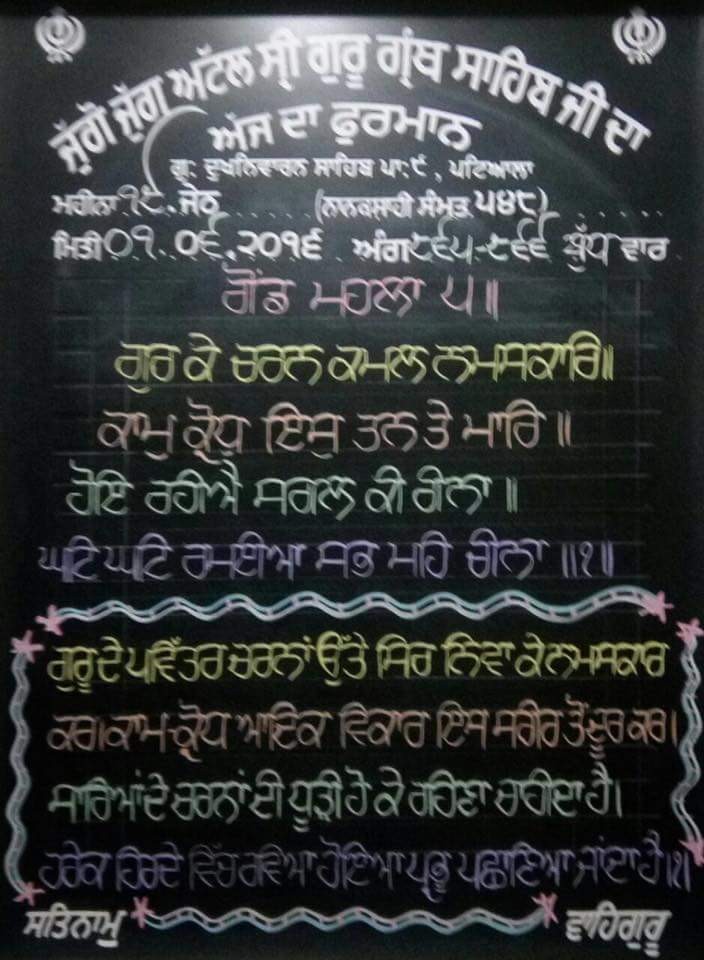 ਜੁੱਗੋ ਜੁੱਗ ਅਟੱਲ ਸ੍ਰੀ ਗੁਰੂ ਗ੍ਰੰਥ ਸਾਹਿਬ ਜੀ ਦਾ
ਅੱਜ ਦਾ ਫੁਰਮਾਨ
ਗੁ: ਦੁਖਨਿਵਾਰਨ ਸਾਹਿਬ ਪਾ:੯, ਪਟਿਆਲਾ
ਮਹੀਨਾ ੧੯. ਜੇਠ (ਨਾਨਕਸ਼ਾਹੀ ਸੰਮਤ ੫੪੮)
ਮਿਤੀ 0੧. 0੬. ੨0੧੬ ਅੰਗ ੮੬੫-੮੬੬ ਬੁੱਧ ਵਾਰ
ਗੋਂਡ ਮਹਲਾ ੫॥
ਗੁਰ ਕੇ ਚਰਨ ਕਮਲ ਨਮਸਕਾਰਿ॥
ਕਾਮੁ ਕ੍ਰੋਧੁ ਇਸੁ ਤਨ ਤੇ ਮਾਰਿ॥
ਹੋਇ ਰਹੀਐ ਸਗਲ ਕੀ ਰੀਨਾ॥
ਘਟਿ ਘਟਿ ਰਮਈਆ ਸਭ ਮਹਿ ਚੀਨਾ॥੧॥
ਗੁਰੂ ਦੇ ਪਵਿੱਤਰ ਚਰਨਾਂ ਉੱਤੇ ਸਿਰ ਨਿਵਾ ਕੇ ਨਮਸਕਾਰ
ਕਰ।ਕਾਮ-ਕ੍ਰੋਧ ਆਇਕ ਵਿਕਾਰ ਇਸ ਸਰੀਰ ਤੋਂ ਦੂਰ ਕਰ।
ਸਾਰਿਆਂ ਦੇ ਚਰਨਾਂ ਦੀ ਧੂੜੀ ਹੋ ਕੇ ਰਹਿਣਾ ਚਾਹੀਦਾ ਹੈ।
ਹਰੇਕ ਹਿਰਦੇ ਵਿੱਚ ਰਵਿਆ ਹੋਇਆ ਪ੍ਰਭੂ ਪਛਾਣਿਆ ਜਾਂਦਾ ਹੈ।੧।
ਸਤਿਨਾਮੁ ਵਾਹਿਗੁਰੂ